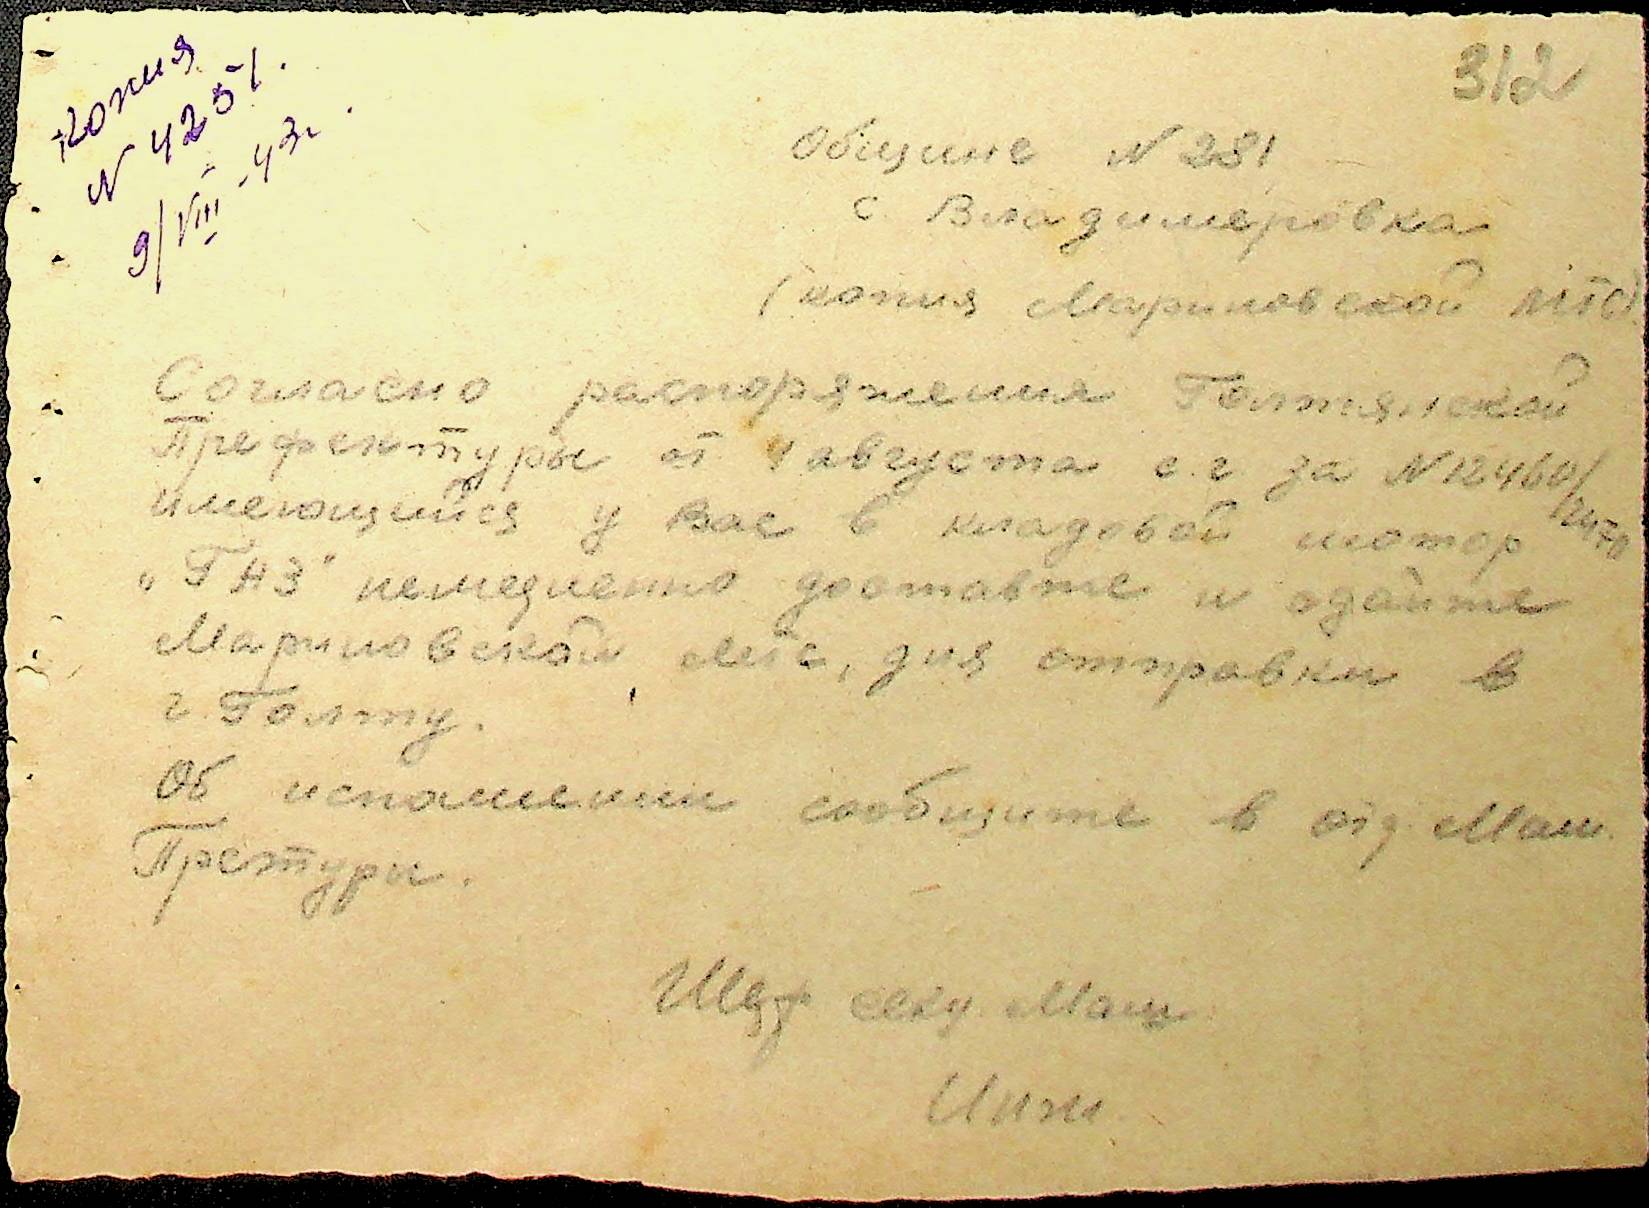 Копия
N 4251.
9/VIII-43г.
312
Общине N 281
с Владимеровка
(копия Мариновской МТС)
Согласно распоряжения Голтянской
Префектуры от 4 августа с.г. за N 12460/2470
имеющийся у Вас в кладовой мотор
„ГНЗ" немедленно доставте и сдайте
Мариновской Мтс, для отправки в
г. Голту.
Об исполнении сообщите в отд. Маш.
Претуры.
Шеф секц. Маш
Инж.